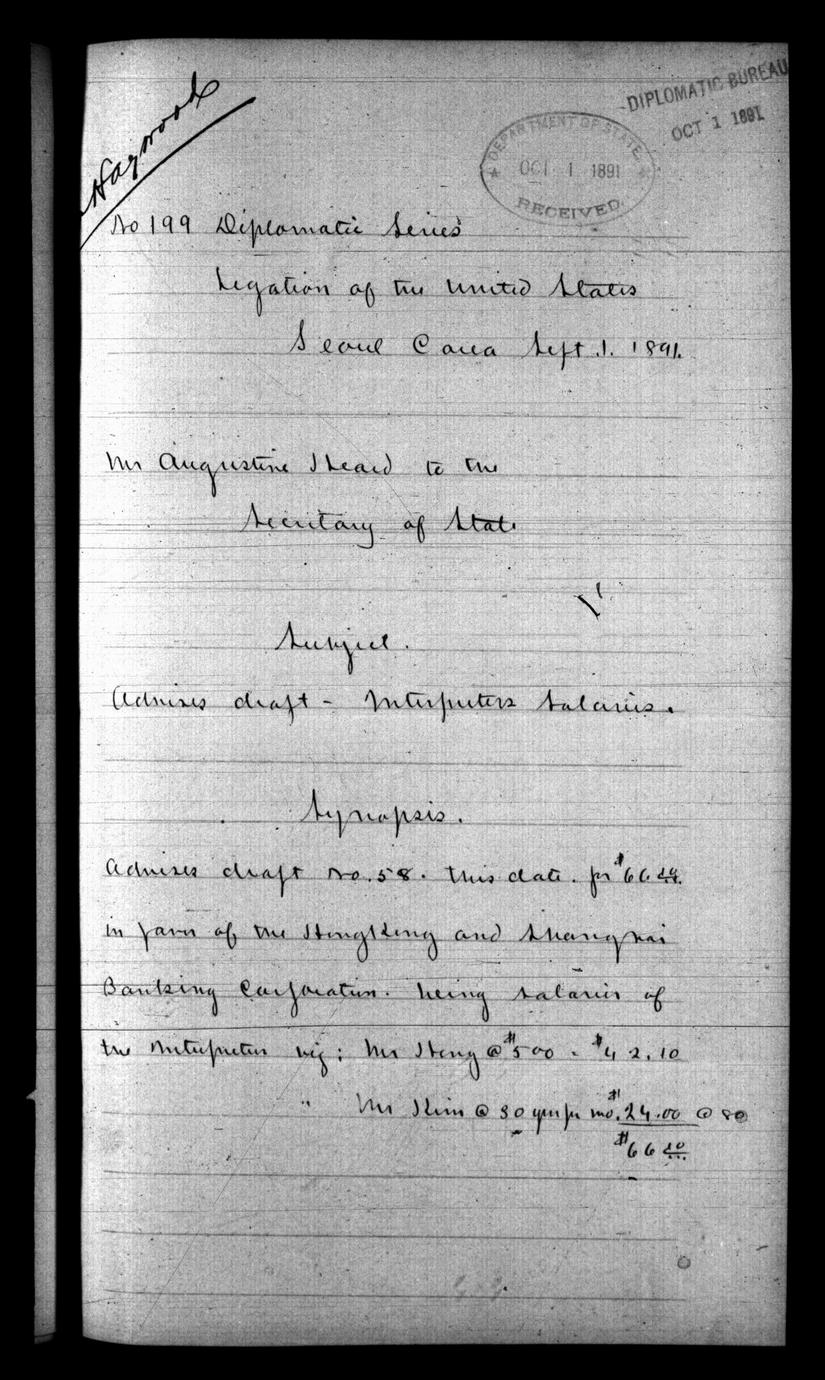 Haywood
DIPLOMATIC BUREAU
OCT 1 1891
DEPARTMENT OF STATE
OCT 1 1891
RECEIVED.
No 199 Diplomatic Series
Legation of the United States
Seoul Corea Sept. 1. 1891.
Mr Augustine Heard to the
Secretary of State
Subject.
Advises draft - Interpreters Salaries.
Synopsis.
Advises draft No. 58. this date. for $66
in favor of the HongKong and Shanghai
Banking Corporation. being salaries of
the Interpreters viz; Mr Hong @ $500 - $42.10
" Mr Kim @ 30 yen per mo. $24.00 @ 80
$66 10